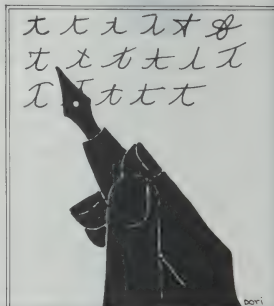 t t t t t t
t t t t t t t
t t t t t
Dori